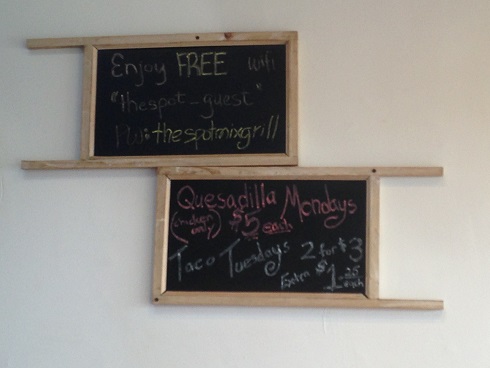 Enjoy FREE wifi
"thespot-guest"
PW: thespotmixgrill
Quesadilla Mondays
(chicken only) $5 each
Taco Tuesdays 2 for $3
Extra $1.25 each